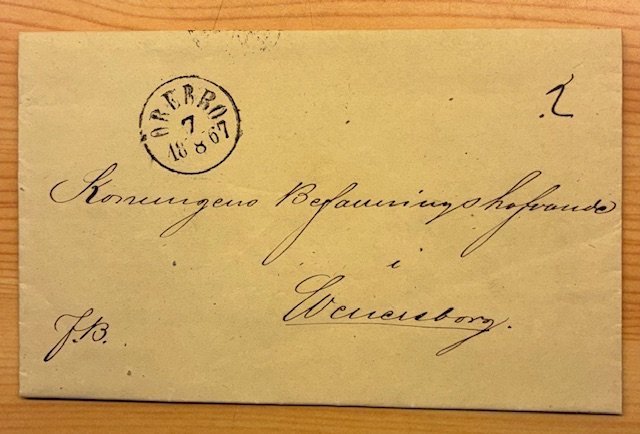 ÖREBRO
7
18 8 67
2
Konungens Befallningshafvande
i
Wenersborg.
F.B.